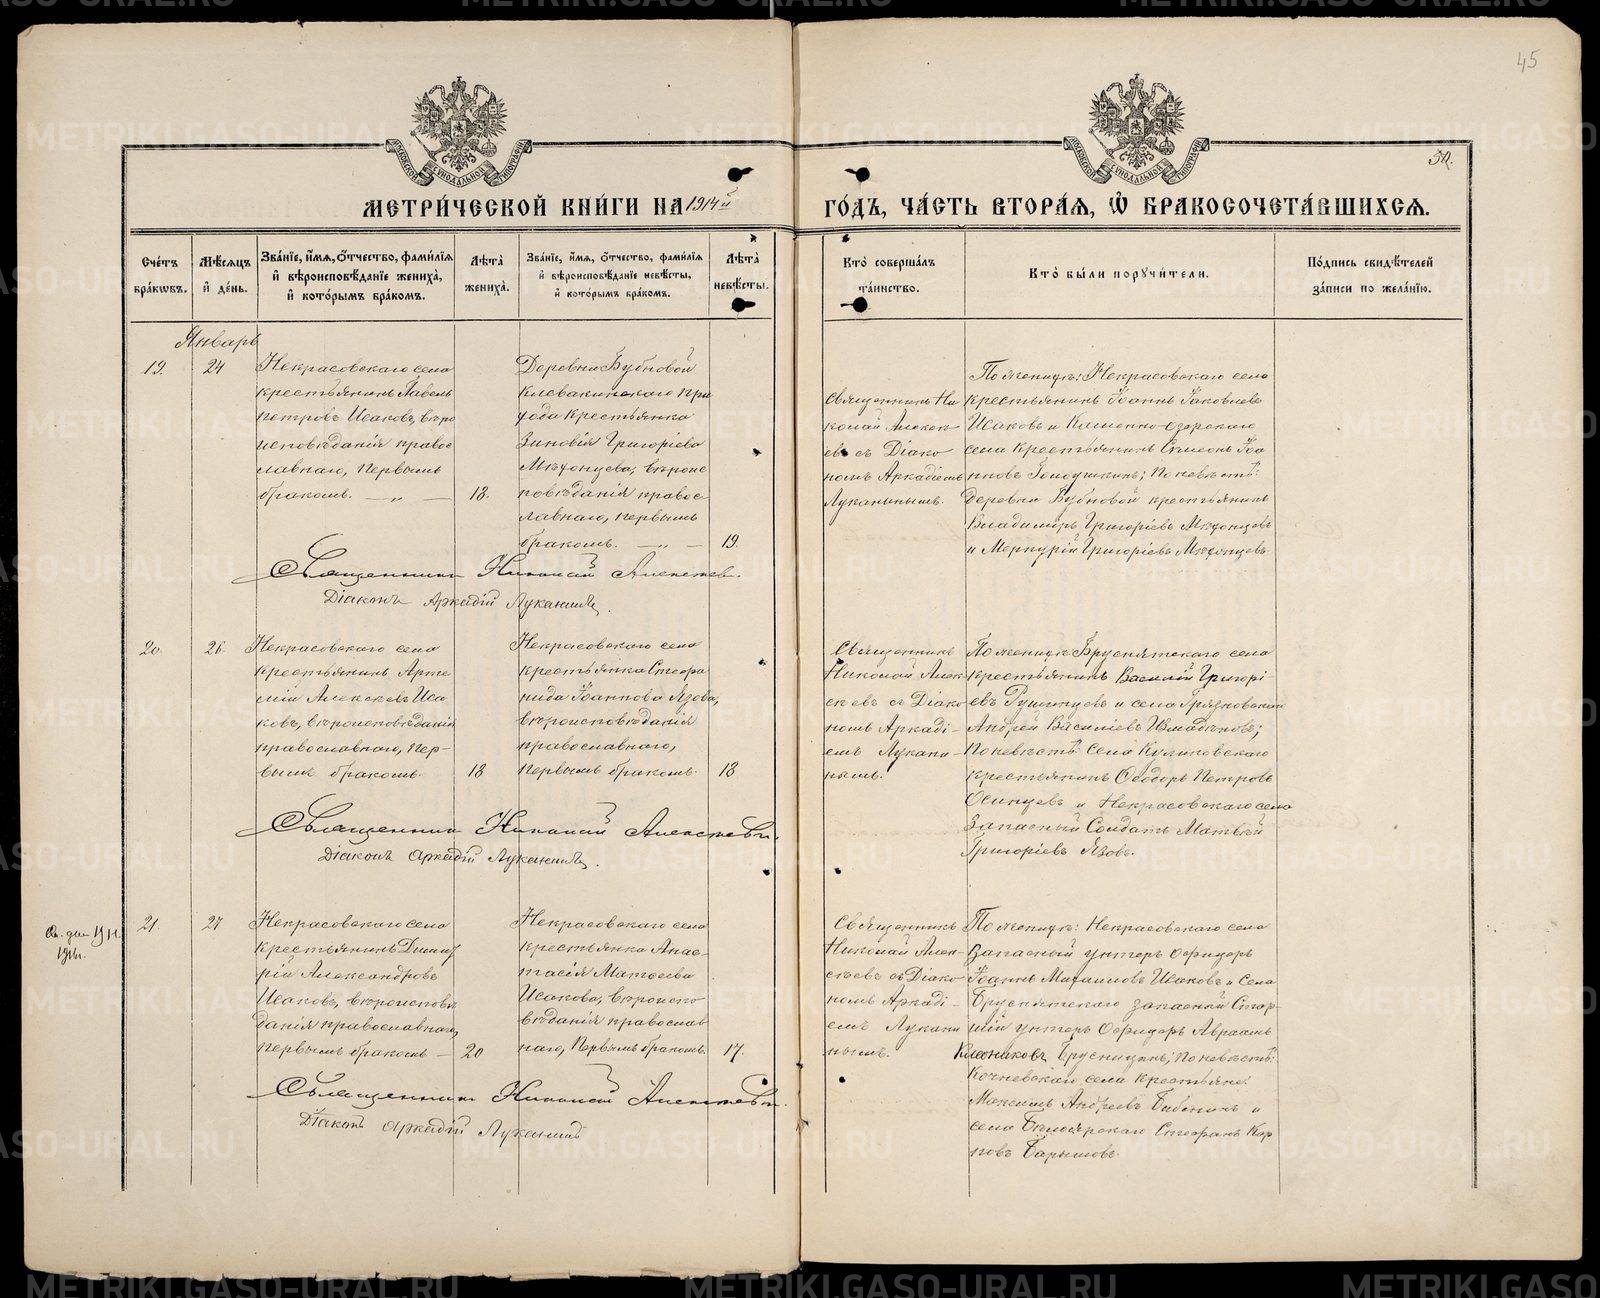 45
50.
МЕТРИ́ЧЕСКОЙ КНИ́ГИ НА 1914й ГО́ДЪ, ЧА́СТЬ ВТОРА́Я, Ѽ БРАКОСОЧЕТА́ВШИХСЯ.
Сче́тъ бра́кѡвъ.
Мѣ́сяцъ и҆ де́нь.
Зва́нїе, и҆́мя, ѻ҆́тчество, фами́лїя и҆ вѣроисповѣ́данїе жениха̀, и҆ кото́рымъ бра́комъ.
Лѣта̀ жениха̀.
Зва́нїе, и҆́мя, ѻ҆́тчество, фами́лїя и҆ вѣроисповѣ́данїе невѣ́сты, и҆ кото́рымъ бра́комъ.
Лѣта̀ невѣ́сты.
Кто̀ соверша́лъ та́инство.
Кто̀ бы́ли порꙋчи́тели.
По́дпись свидѣ́телей за́писи по жела́нїю.
Январь
19.
24
Некрасовскаго села
крестьянинъ Павелъ
Петровъ Исаковъ, вѣро
исповѣданія правос
лавнаго, первымъ
бракомъ. — „ —
18.
Деревни Бубновой
Клевакинскаго при
хода крестьянка
Зиновія Григоріева
вѣроис
повѣданія правос
лавнаго, первымъ
бракомъ. — „ —
19.
Священникъ Ни
колай Алексѣ
евъ съ Діако
номъ Аркадіемъ
Луканинымъ.
По женихѣ: Некрасовскаго села
крестьянинъ Іоаннъ Іаковлевъ
Исаковъ и Каменно-озерскаго
села крестьянинъ Симеонъ Іоа
нновъ по невѣстѣ:
Деревни Бубновой крестьянинъ
Владиміръ Григоріевъ
и Меркурій Григоріевъ
Священникъ Николай Алексѣевъ.
Діаконъ Аркадій Луканинъ.
20.
26.
Некрасовскаго села
крестьянинъ Арте
мій Алексѣевъ Иса
ковъ, вѣроисповѣданія
православнаго, пер-
вымъ бракомъ.
18
Некрасовскаго села
крестьянка Стефа
нида Іоаннова Язова,
вѣроисповѣданія
православнаго,
первымъ бракомъ.
18
Священникъ
Николай Алек
сѣевъ съ Діако
номъ Аркаді-
емъ Лукани-
нымъ.
По женихѣ Бруснятскаго села
крестьянинъ Василій Григорі
евъ и села Грязновскаго
Андрей Василіевъ
По невѣстѣ: села Куликовскаго
крестьянинъ Ѳеодоръ Петровъ
Осинцевъ и Некрасовскаго села
Запасный Солдатъ Матвѣй
Григоріевъ Язовъ.
Священникъ Николай Алексѣевъ.
Діаконъ Аркадій Луканинъ.
21.
27
Некрасовскаго села
крестьянинъ Димит
рій Александровъ
Исаковъ, вѣроисповѣ
данія православнаго,
первымъ бракомъ —
20
Некрасовскаго села
крестьянка Анас-
тасія Матѳеева
Исакова, вѣроиспо
вѣданія православ
наго, первымъ бракомъ.
17.
Священникъ
Николай Алек-
сѣевъ съ Діако
номъ Аркаді-
емъ Лукани
нымъ.
По женихѣ: Некрасовскаго села
Запасный унтеръ офицеръ
Іоаннъ Михаиловъ Исаковъ и села
Бруснятскаго запасной Стар-
шій унтеръ офицеръ Авраамъ
Брусницынъ; по невѣстѣ:
Кочневскаго села крестьяне:
Максимъ Андреевъ Бабкинъ и
села Бѣлоярскаго Стефанъ Кар
повъ Барышовъ.
Священникъ Николай Алексѣевъ.
Діаконъ Аркадій Луканинъ